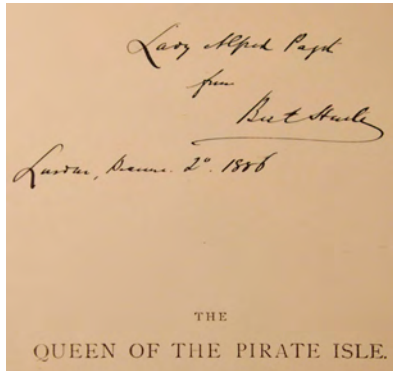 Lady Alfred Paget
from
Bret Harte
London, Decem. 2º. 1886
THE
QUEEN OF THE PIRATE ISLE.